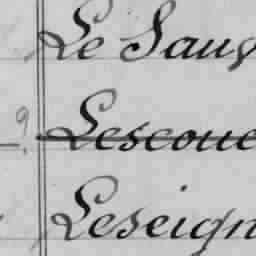 Le Sauv
9 Lescoue
Leseign